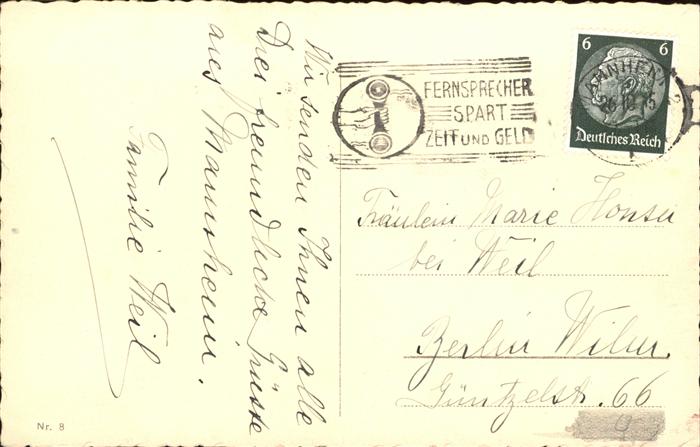 Wir senden Ihnen alle
Drei freundliche Grüsse
aus Mannheim.
Familie Weil
FERNSPRECHER
SPART
ZEIT UND GELD
MANNHEIM
6 6
Deutsches Reich
Fräulein Marie
bei Weil
Berlin Wilm.
Güntzelstr. 66
Nr. 8